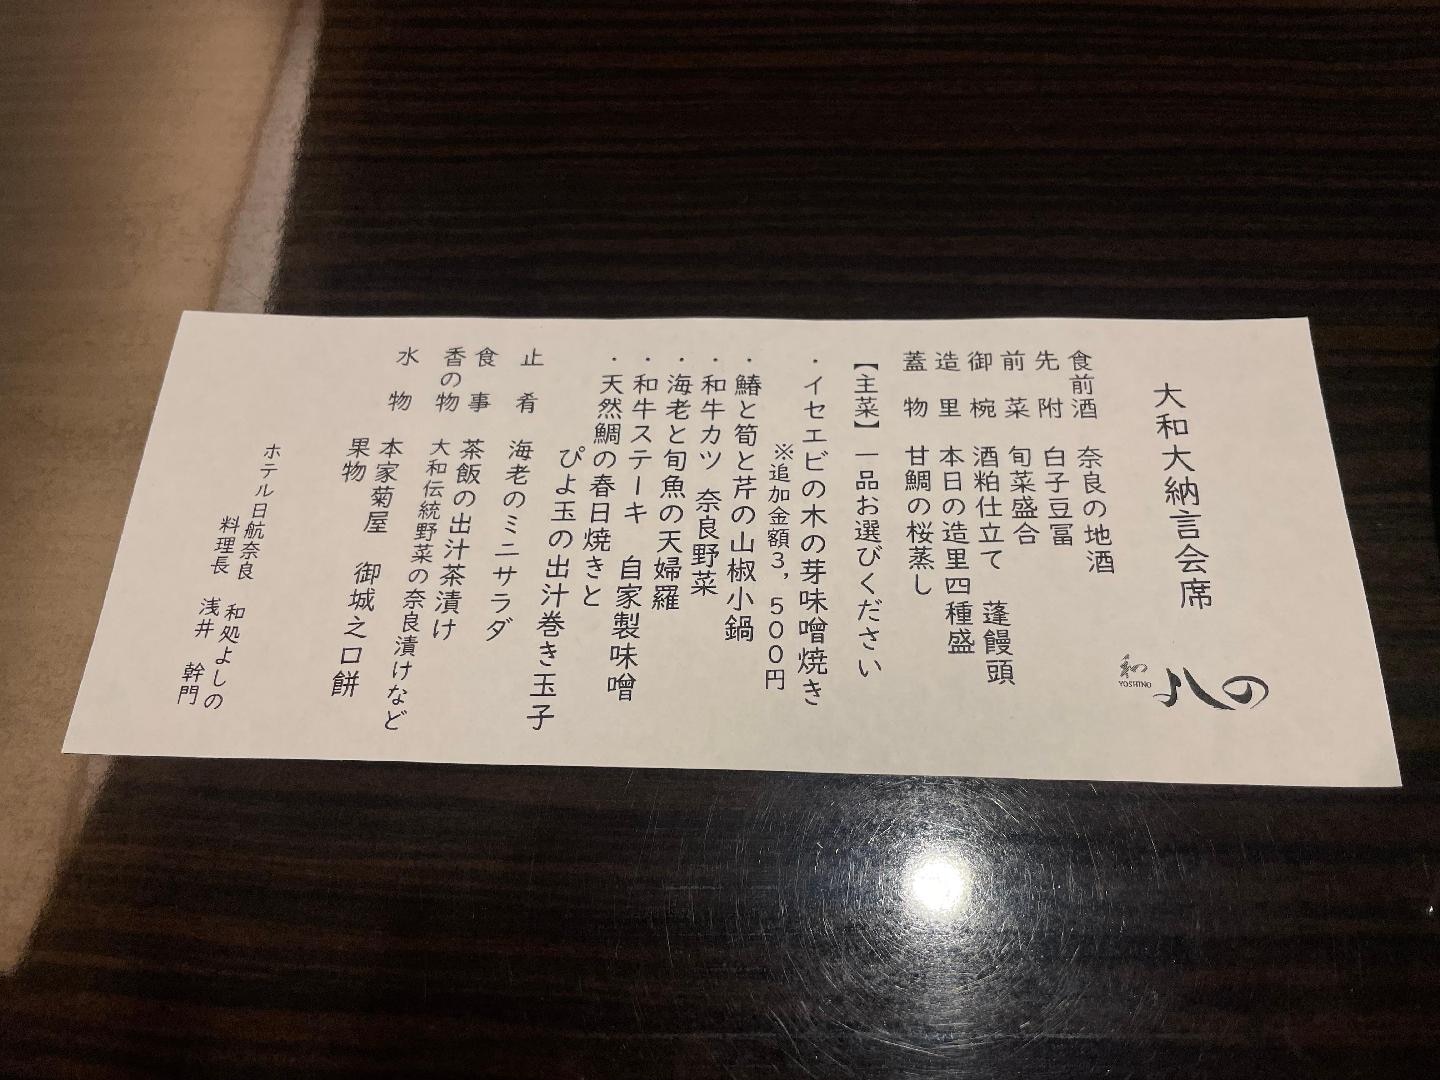 大和大納言会席
和 YOSHINO よしの
食前酒 奈良の地酒
先附 白子豆冨
前菜 旬菜盛合
御椀 酒粕仕立て 蓬饅頭
造里 本日の造里四種盛
蓋物 甘鯛の桜蒸し
【主菜】一品お選びください
・イセエビの木の芽味噌焼き
※追加金額3,500円
・鰆と筍と芹の山椒小鍋
・和牛カツ 奈良野菜
・海老と旬魚の天婦羅
・和牛ステーキ 自家製味噌
・天然鯛の春日焼きと
ぴよ玉の出汁巻き玉子
止肴 海老のミニサラダ
食事 茶飯の出汁茶漬け
香の物 大和伝統野菜の奈良漬けなど
水物 本家菊屋 御城之口餅
果物
ホテル日航奈良 和処よしの
料理長 浅井 幹門